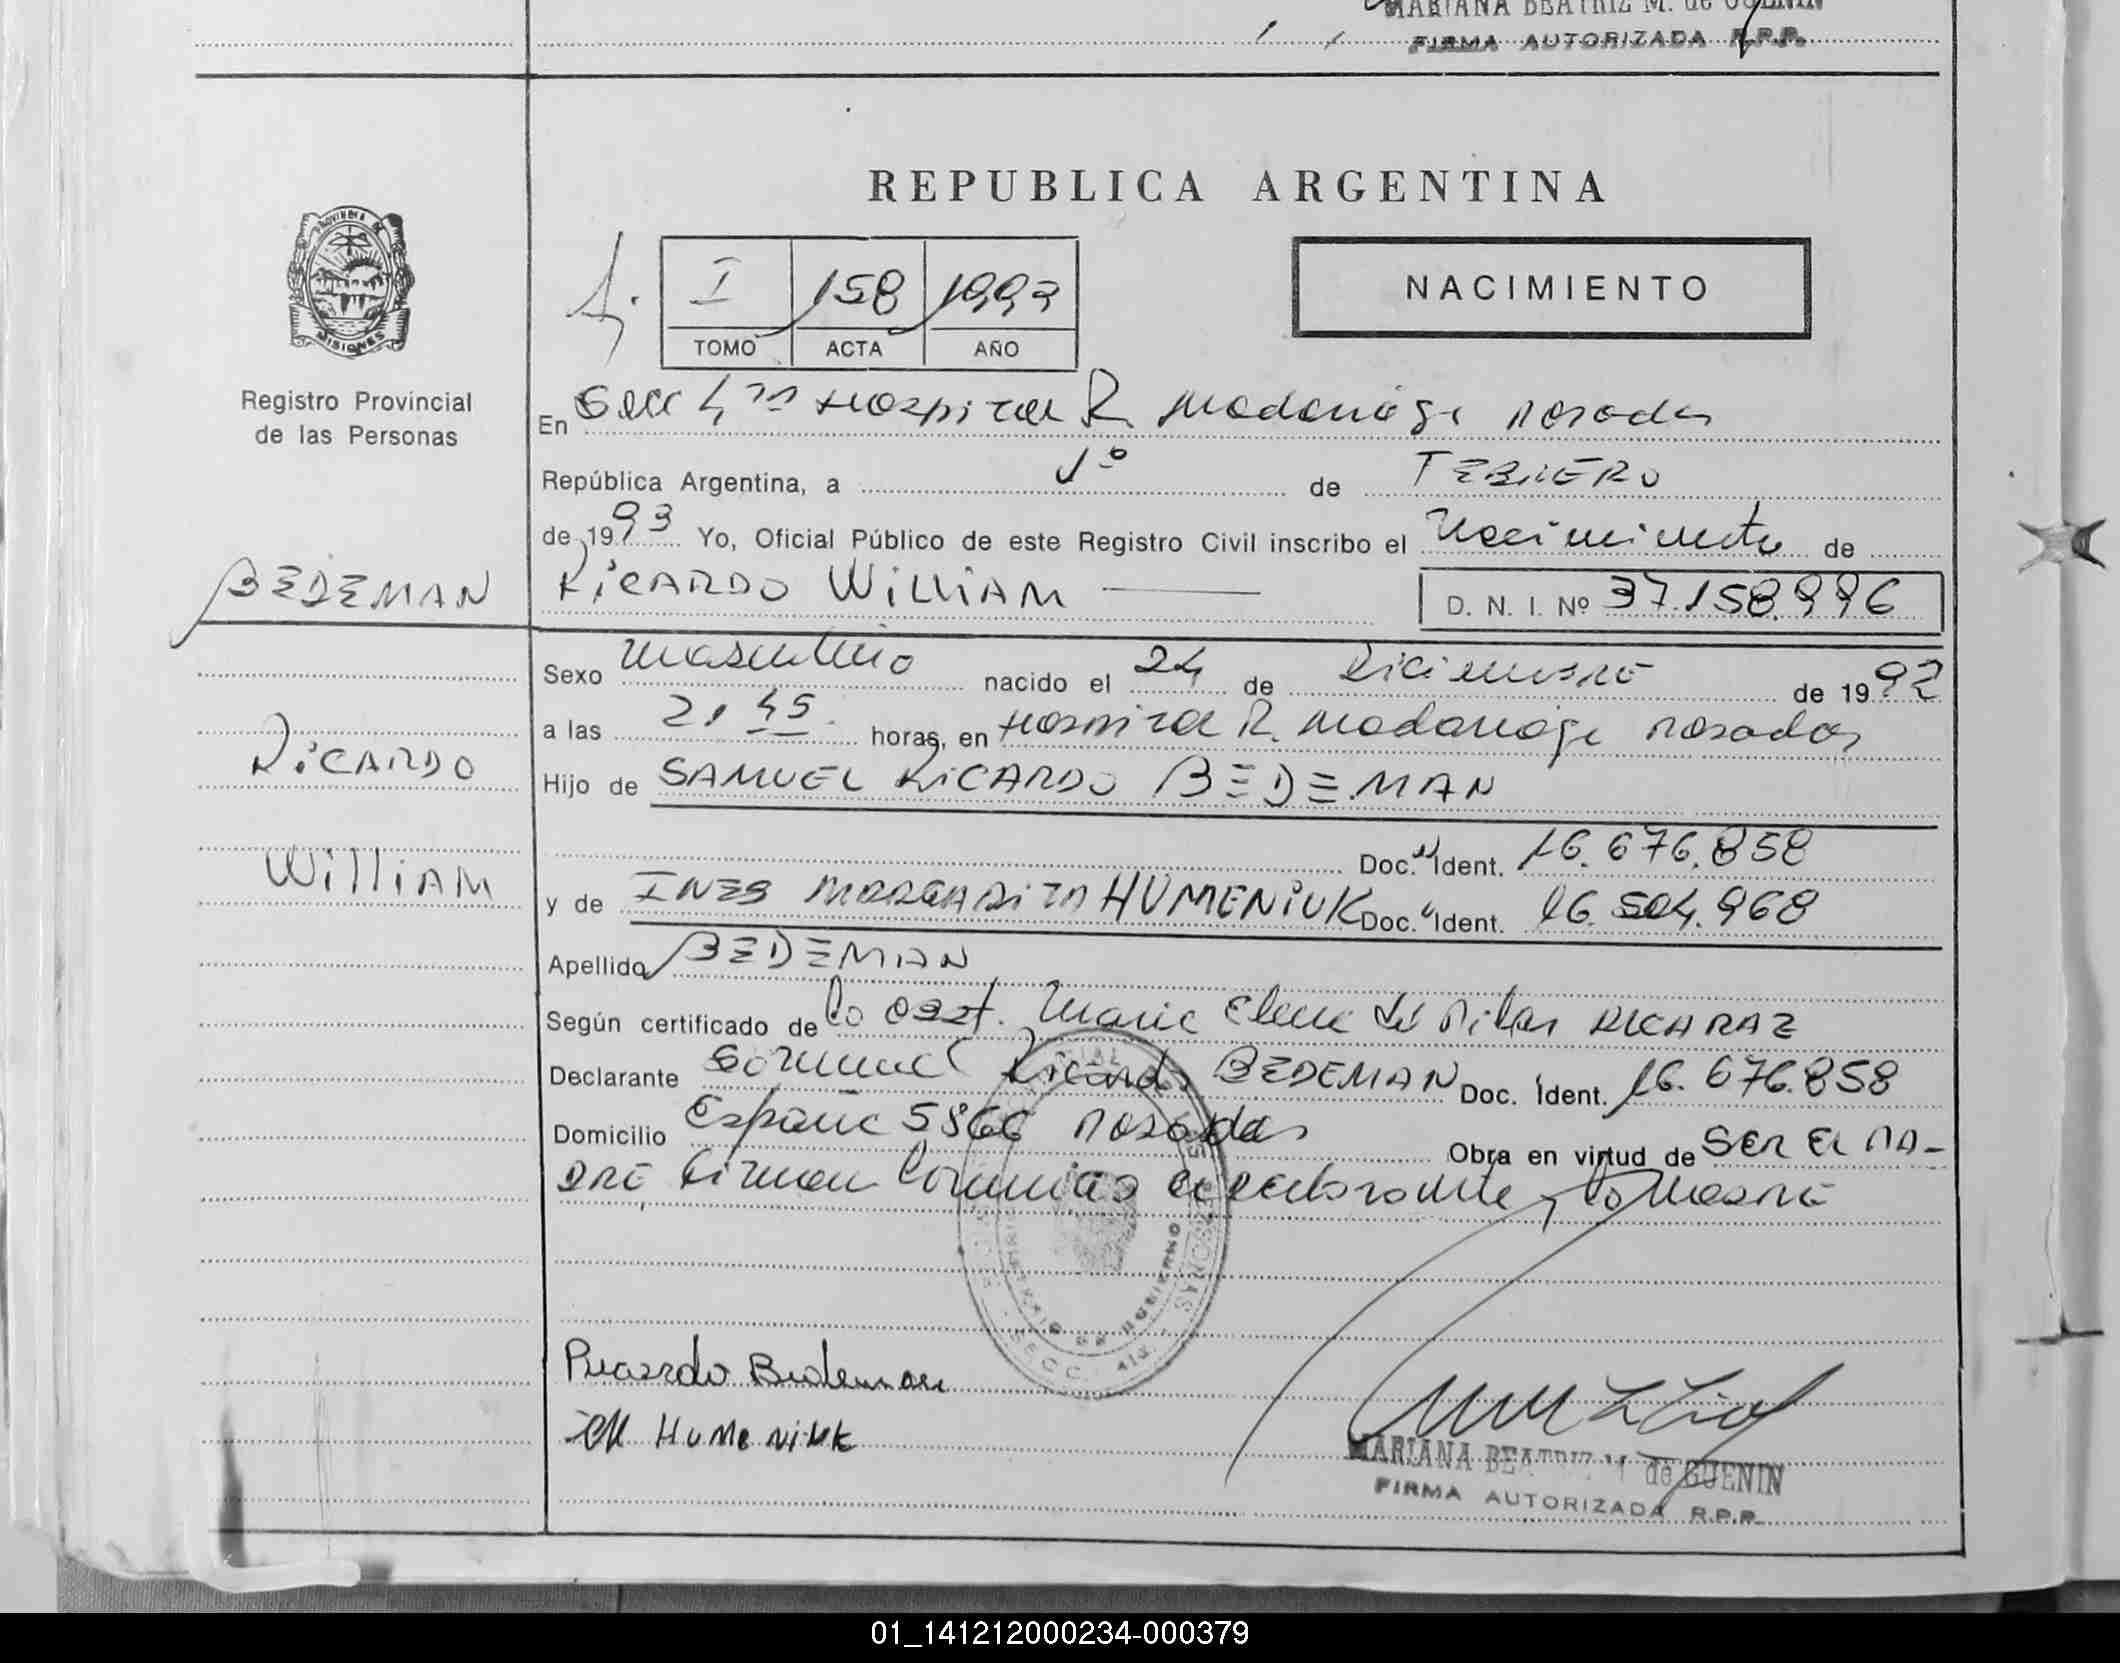 MARIANA BEATRIZ M. de GUENIN
FIRMA AUTORIZADA R.P.P.
REPUBLICA ARGENTINA
PROVINCIA DE
MISIONES
I 158 1993
TOMO ACTA AÑO
NACIMIENTO
Registro Provincial
de las Personas
En Secc 4ta Hospital R. Madariaga Posadas
República Argentina, a 1º de FEBRERO
de 1993 Yo, Oficial Público de este Registro Civil inscribo el Nacimiento de
BEDEMAN RICARDO WilliAM D. N. I. Nº 37.158.996
Sexo masculino nacido el 24 de Diciembre de 1992
a las 21 45 horas, en Hospital R. Madariaga Posadas
RiCARDO
Hijo de SAMUEL RiCARDO BEDEMAN
Doc. Ident. 16.676.858
WilliAM
y de INES MARGARITA HUMENiUK Doc. Ident. 16.504.968
Apellido BEDEMAN
Según certificado de la obst. Maria Elena del Pilar ALCARAZ
Declarante Samuel Ricardo BEDEMAN Doc. Ident. 16.676.858
Domicilio España 5866 Posadas Obra en virtud de SER EL PA-
DRE Firman Conmigo el declarante y la Madre
MINISTERIO DE GOBIERNO
Ricardo Bedeman
IM HUMENiUK
MARIANA BEATRIZ M. de GUENIN
FIRMA AUTORIZADA R.P.P.
01_141212000234-000379